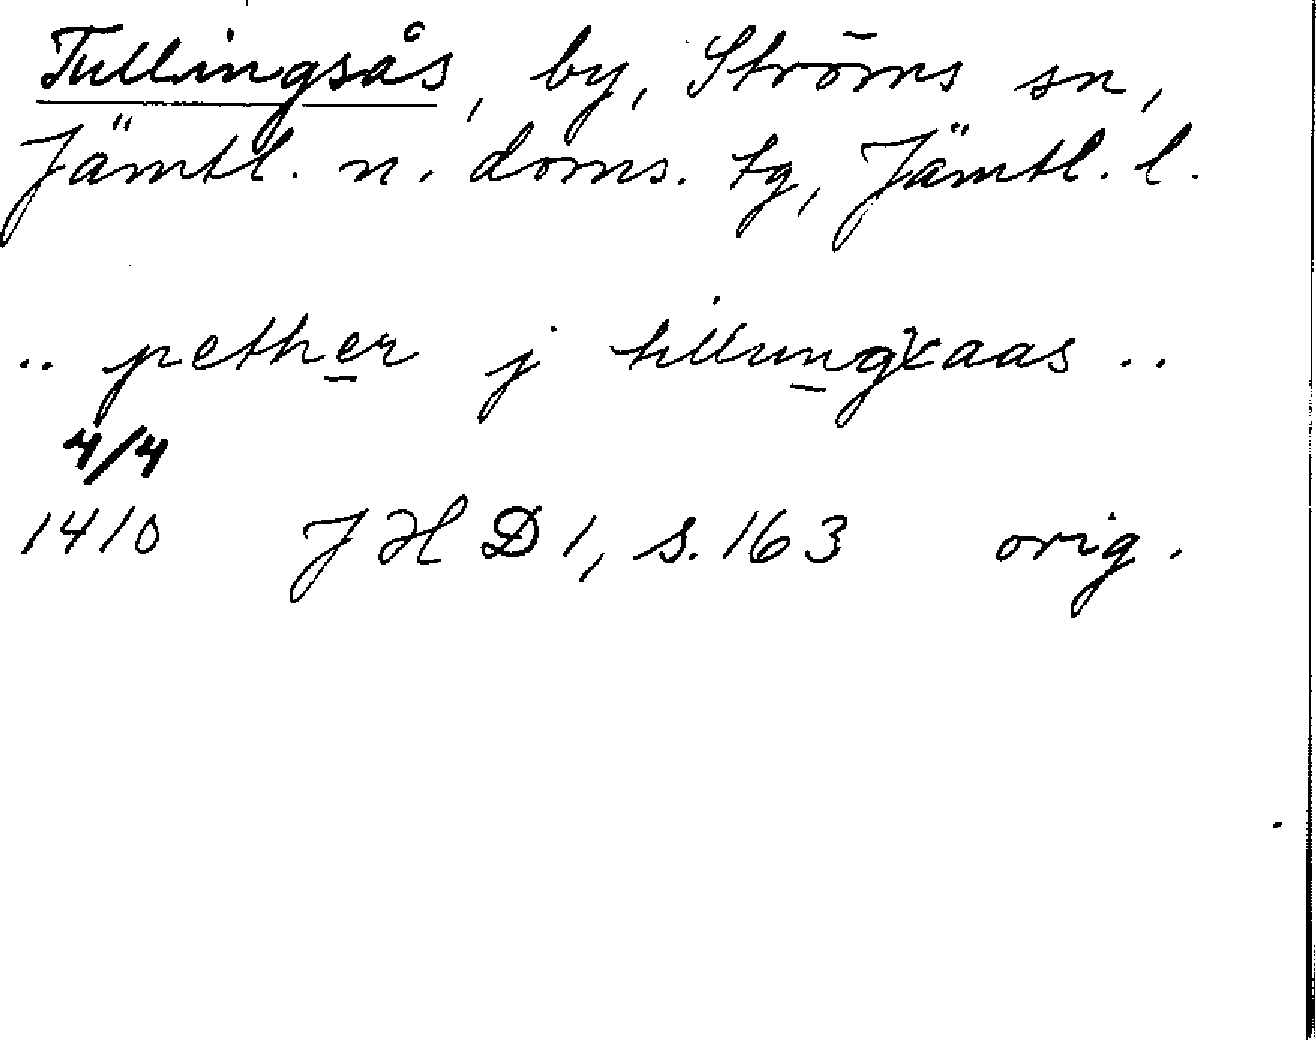 Tullingsås, by, Ströms sn,
Jämtl. n. doms. tg, Jämtl. l.
.. pether j tillungxaas ..
4/4
1410 JHD 1, s. 163 orig.